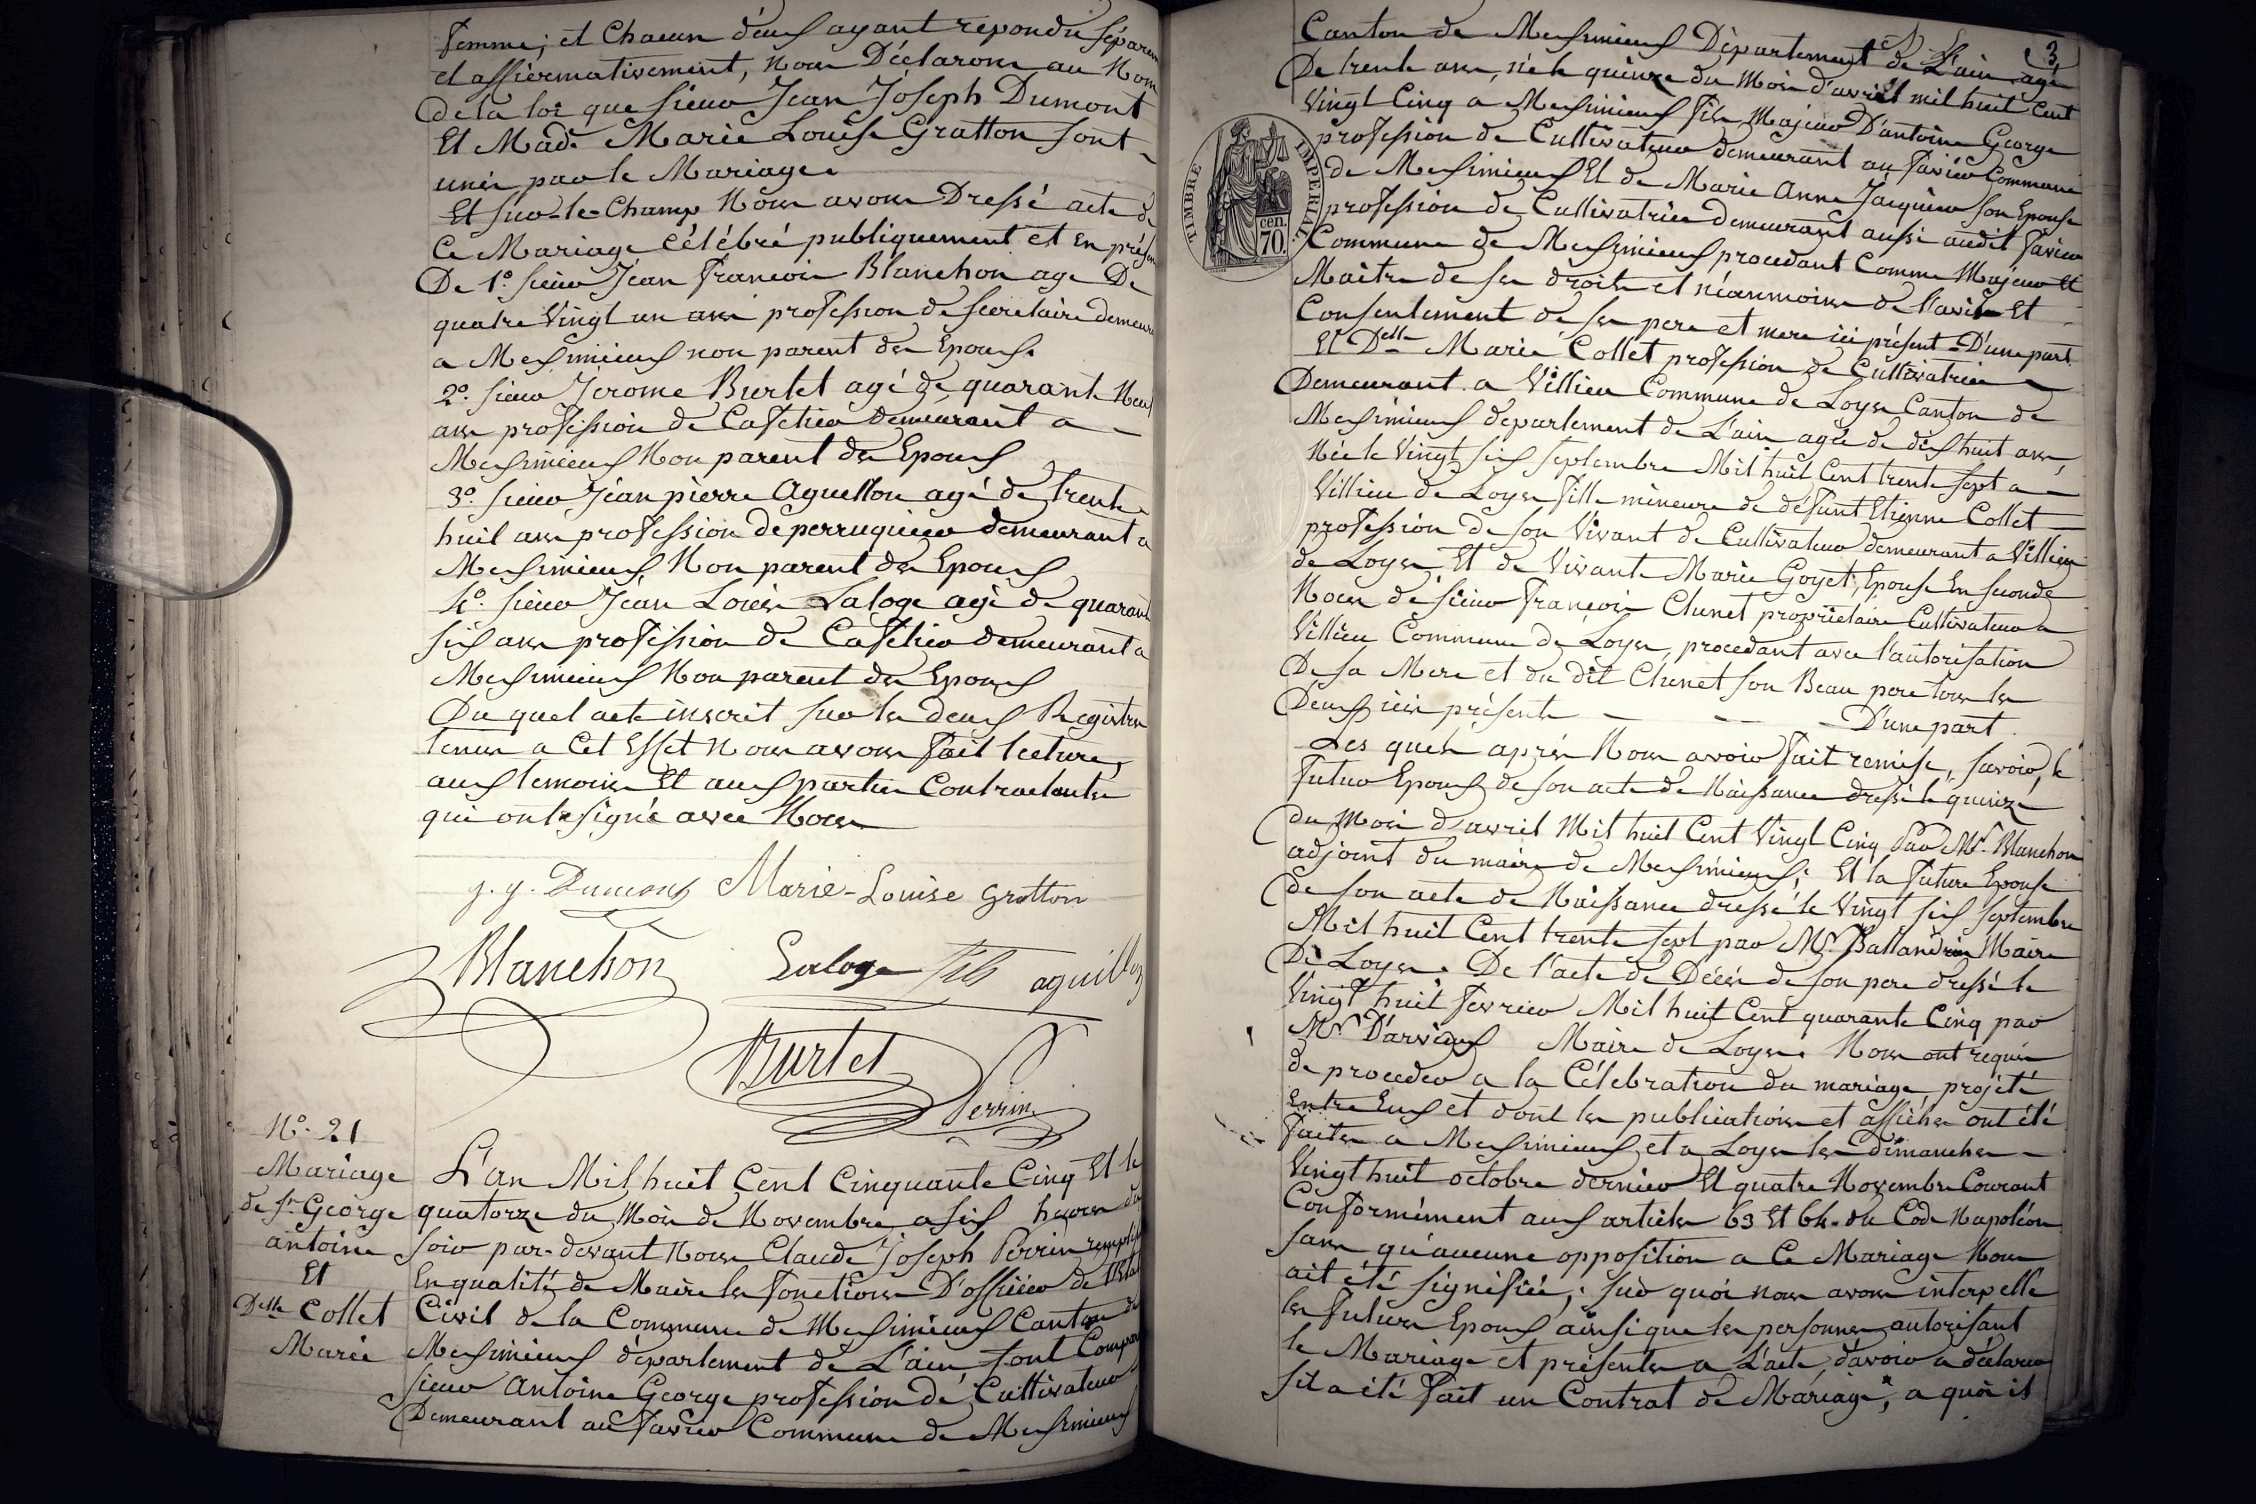 femme; et Chacun d'eux ayant repondu séparem
et affirmativement, Nous Déclarons au Nom
de la loi que sieur Jean Joseph Dumont
Et Made Marie Louise Gratton sont
unis par le Mariage.
Et sur-le-Champ Nous avons Dressé acte de
Ce Mariage célébré publiquement et en présen
De 1º. sieur Jean François Blanchon age De
quatre Vingt un ans profession de secretaire demeura
a Meximieux non parent des Epoux.
2º. sieur Jerome Burtet agé de quarante Neuf
ans profession de Cafetier demeurant a
Meximieux Non parent des Epoux
3º. sieur Jean pierre Aguettou agé de trente
huit ans profession de perruquier demeurant a
Meximieux, Non parent des Epoux
4º. sieur Jean Louis Laloge agé de quarante
six ans profession de Cafetier demeurant a
Meximieux Non parent des Epoux
Du quel acte inscrit sur les deux Registres
tenus a Cet Effet Nous avons fait lecture,
aux temoins Et aux parties Contractantes
qui ont signé avec Nous
j. j. Dumont Marie-Louise Gratton
Blanchon Laloge fils aguillon
JBurtet
Perrin
Nº. 21
Mariage
de Sr. George
antoine
Et
Delle Collet
Marie
L'an Mil huit Cent Cinquante Cinq Et le
quatorze du Mois de Novembre a six heures du
soir par-devant Nous Claude Joseph Perrin remplis
En qualité de Maire les fonctions D'officier de l'Etat
Civil de la Commune de Meximieux Canton de
Meximieux département de L'ain, sont Compar
sieur Antoine George profession de Cultivateur
Demeurant au favier Commune de Meximieux
3
Canton de Meximieux Département de L'ain agé
De trente ans, né le quinze du Mois d'avril mil huit Cent
Vingt Cinq a Meximieux fils Majeur D'antoine George
profession de Cultivateur demeurant au favier Commune
de Meximieux Et de Marie Anne Jacquier son Epouse
profession de Cultivatrice demeurant aussi audit favier
Commune de Meximieux procedant Comme Majeur Et
Maitre de ses droits et néanmoins de l'avis Et
Consentement de ses pere et mere ici présent - D'une part
Et Delle Marie Collet profession de Cultivatrice
Demeurant a Villieu Commune de Loyes Canton de
Meximieux departement de L'ain agée de dix huit ans,
Née le Vingt six septembre Mil huit Cent trente sept a
Villieu de Loyes fille mineure de défunt Etienne Collet
profession de son Vivant de Cultivateur demeurant a Villieu
de Loyes Et de Vivante Marie Goyet, Epouse En seconde
Noces de sieur François Clunet propriétaire Cultivateur a
Villieu Commune de Loyes, procedant avec l'autorisation
De sa Mere et du dit Clunet son Beau pere tous les
Deux ici présents - - - D'une part.
Les quels après Nous avoir fait remise, savoir, le
futur Epoux de son acte de Naissance dressé le quinze
du Mois d'avril Mil huit Cent Vingt Cinq Par Mr. Blanchon
adjoint du maire de Meximieux; Et la future Epouse
de son acte de Naissance dressé le Vingt six septembre
Mil huit Cent trente sept par Mr. Ballandrin Maire
De Loyes. De l'acte de Décès de son pere dressé le
Vingt huit fevrier Mil huit Cent quarante Cinq par
Mr. D'arvieux Maire de Loyes. Nous ont requis
de proceder a la Célebration du mariage projeté
entre Eux et dont les publications et affiches ont été
faites a Meximieux et a Loyes les dimanches
Vingt huit octobre dernier Et quatre Novembre Courant
Conformément aux articles 63 Et 64 du Code Napoléon
sans qu'aucune opposition a Ce Mariage Nous
ait été signifiée; sur quoi nous avons interpellé
les futurs Epoux ainsi que les personnes autorisant
le Mariage et présentes a L'acte, d'avoir a déclarer
s'il a été fait un Contrat de Mariage, a quoi il
TIMBRE IMPERIAL
70 cen.